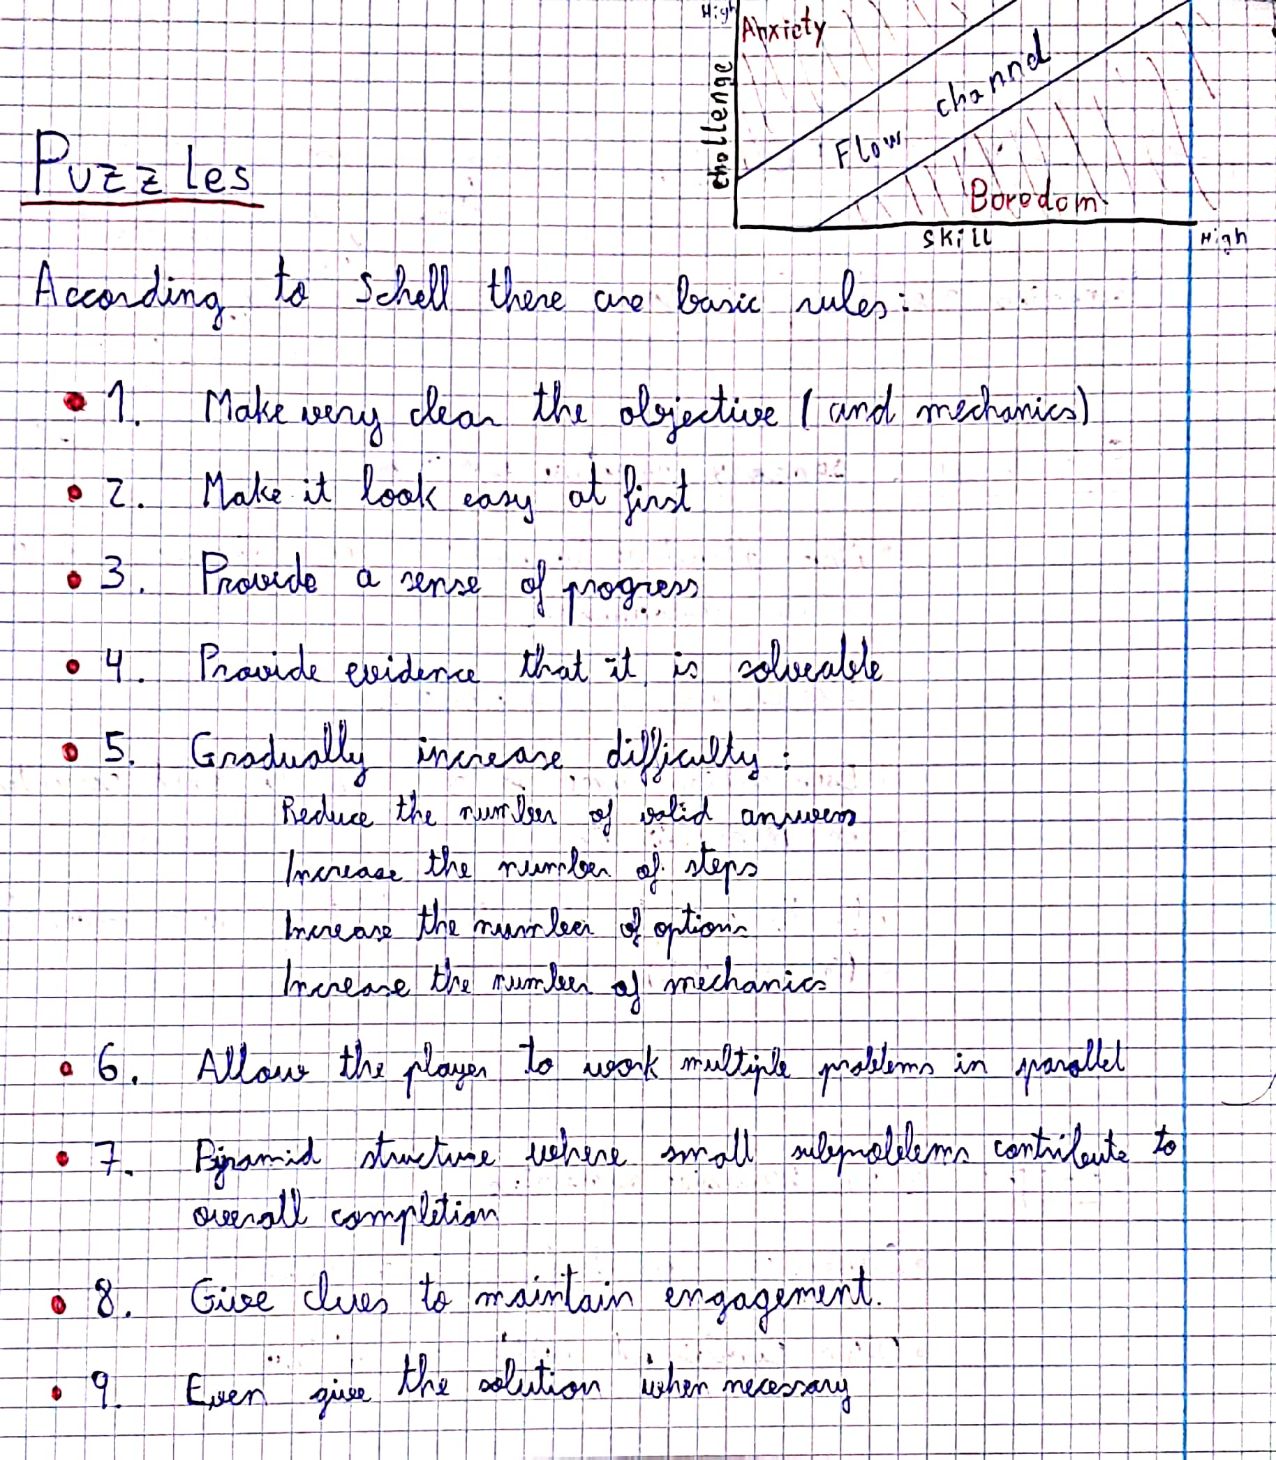 High
Anxiety
challenge
Flow channel
Boredom
Skill
High
Puzzles
According to Schell there are basic rules:
1. Make very clear the objective (and mechanics)
2. Make it look easy at first
3. Provide a sense of progress
4. Provide evidence that it is solveable
5. Gradually increase difficulty:
Reduce the number of valid answers
Increase the number of steps
Increase the number of options
Increase the number of mechanics
6. Allow the player to work multiple problems in parallel
7. Pyramid structure where small subproblems contribute to
overall completion
8. Give clues to maintain engagement.
9. Even give the solution when necessary